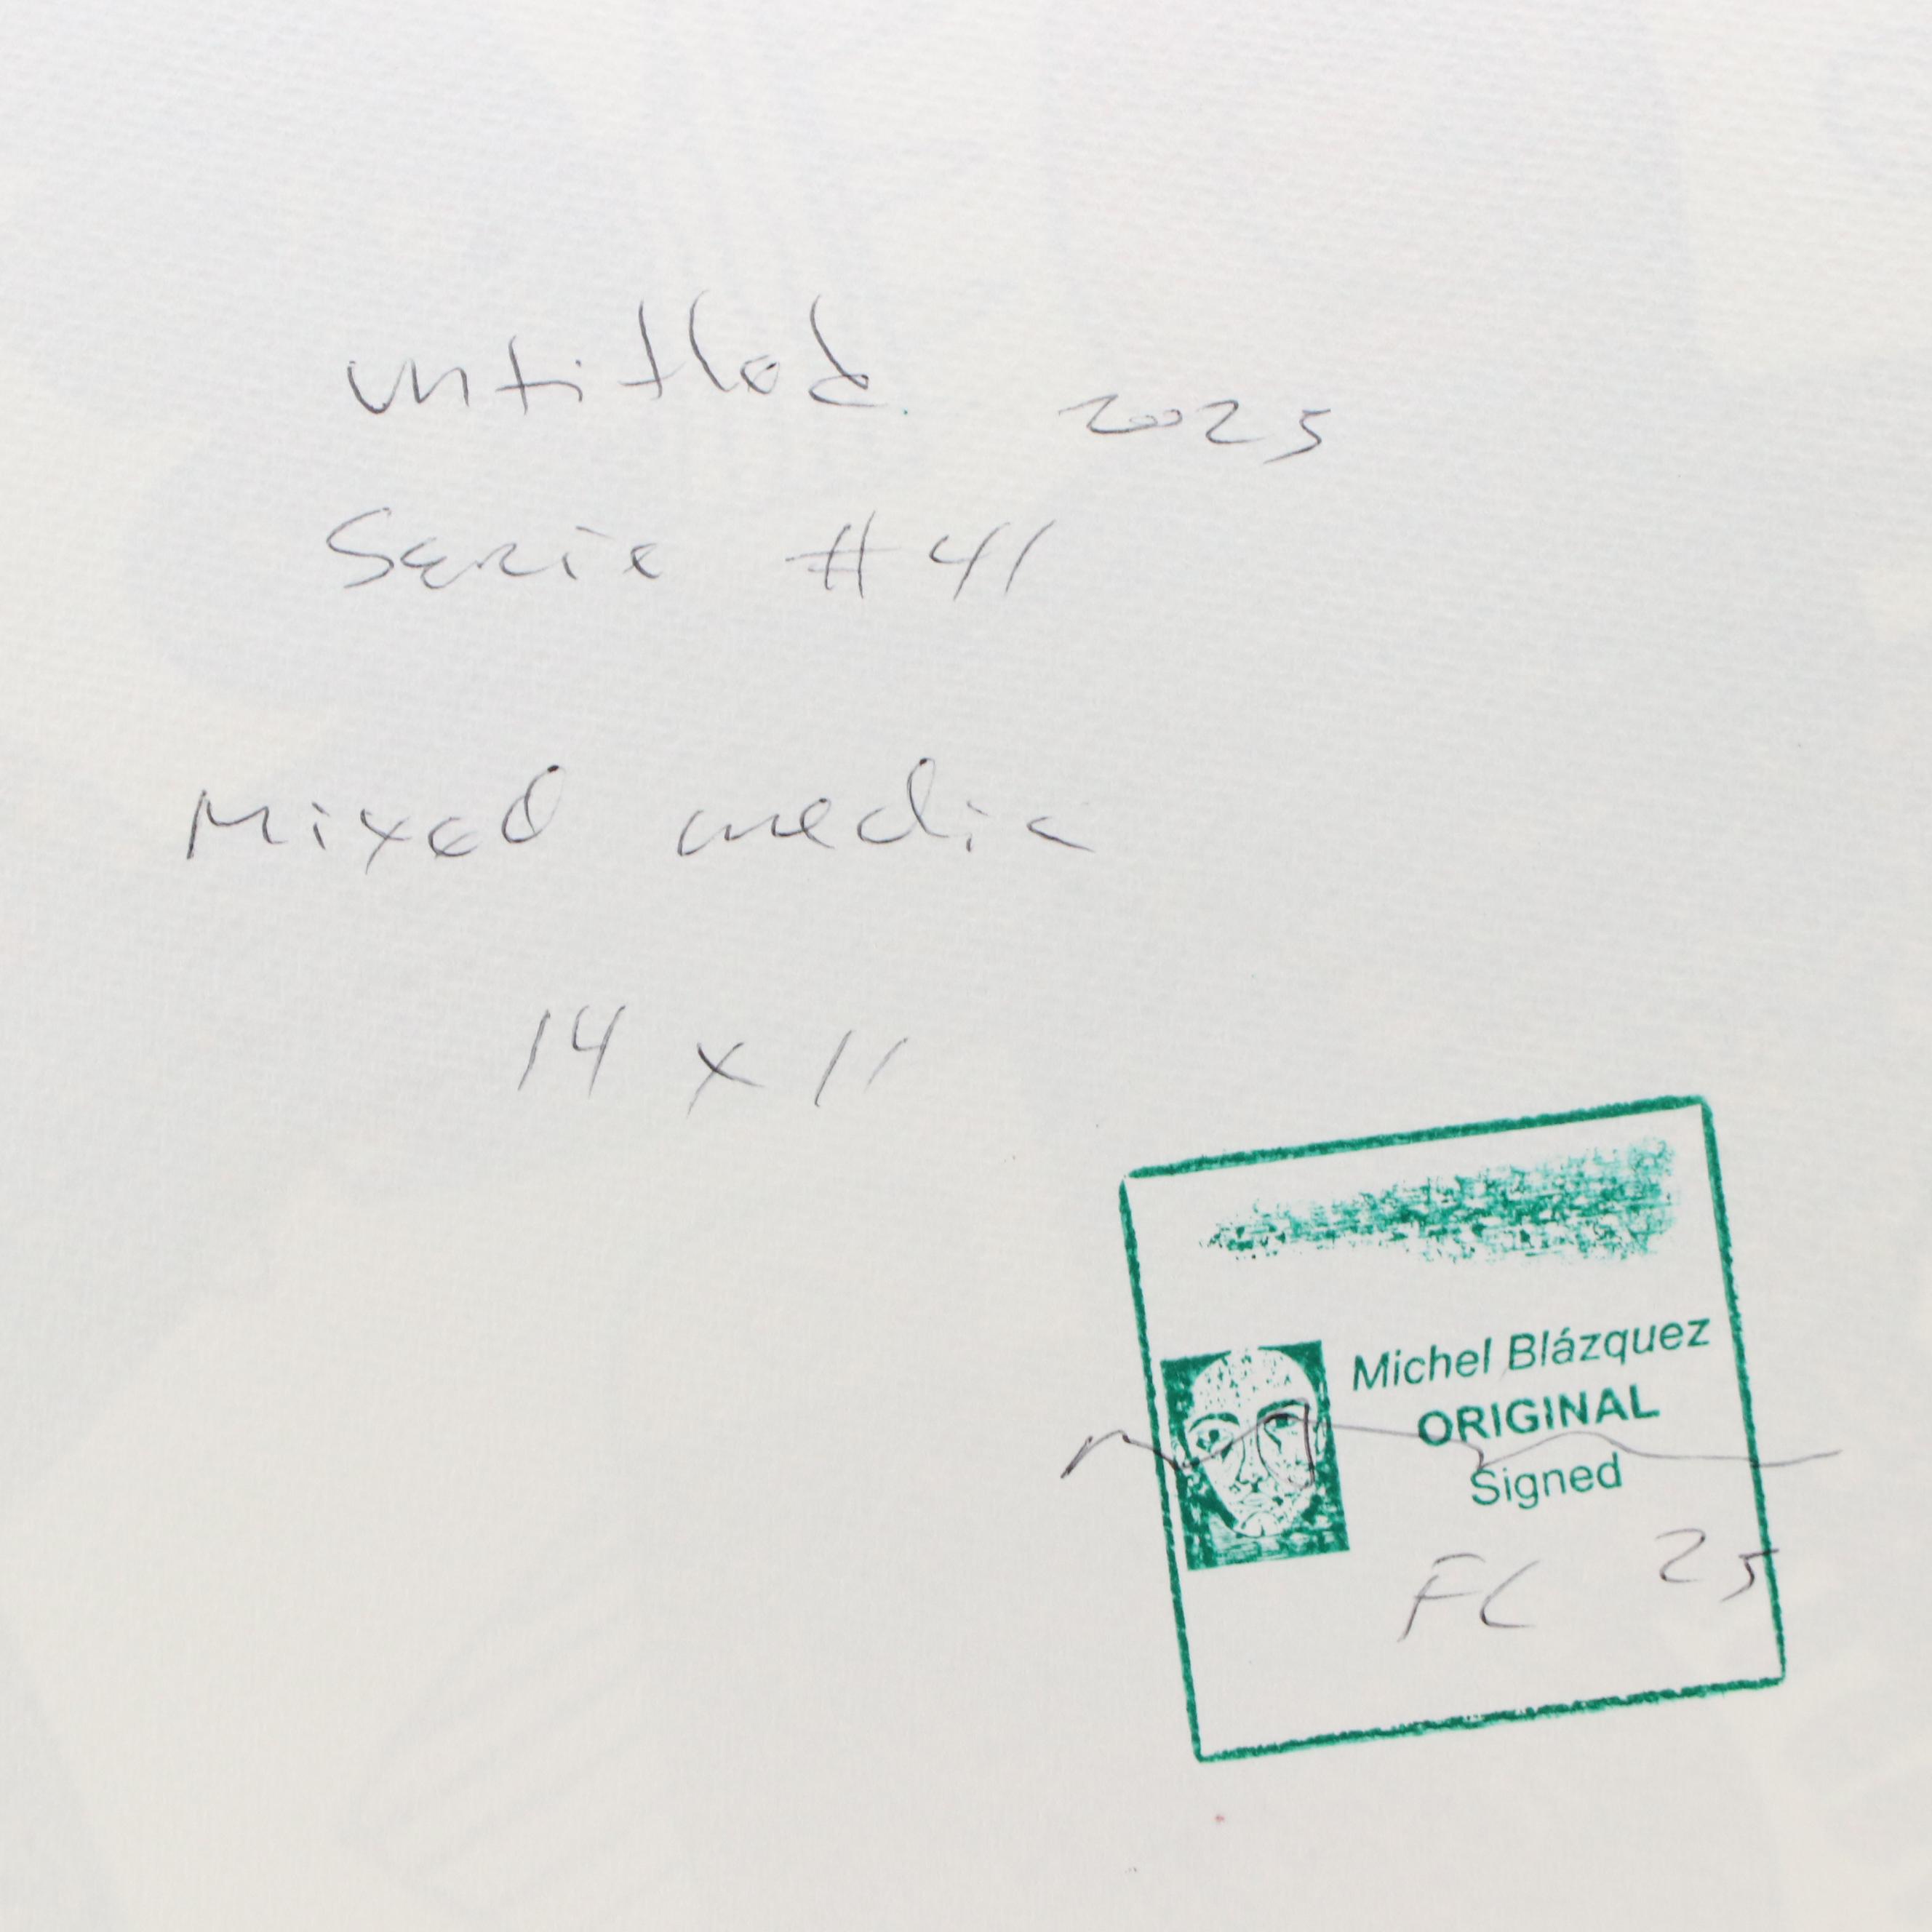 untitled 2025
Serie #41
Mixed media
14 x 11
Michel Blázquez
ORIGINAL
Signed
FC 25